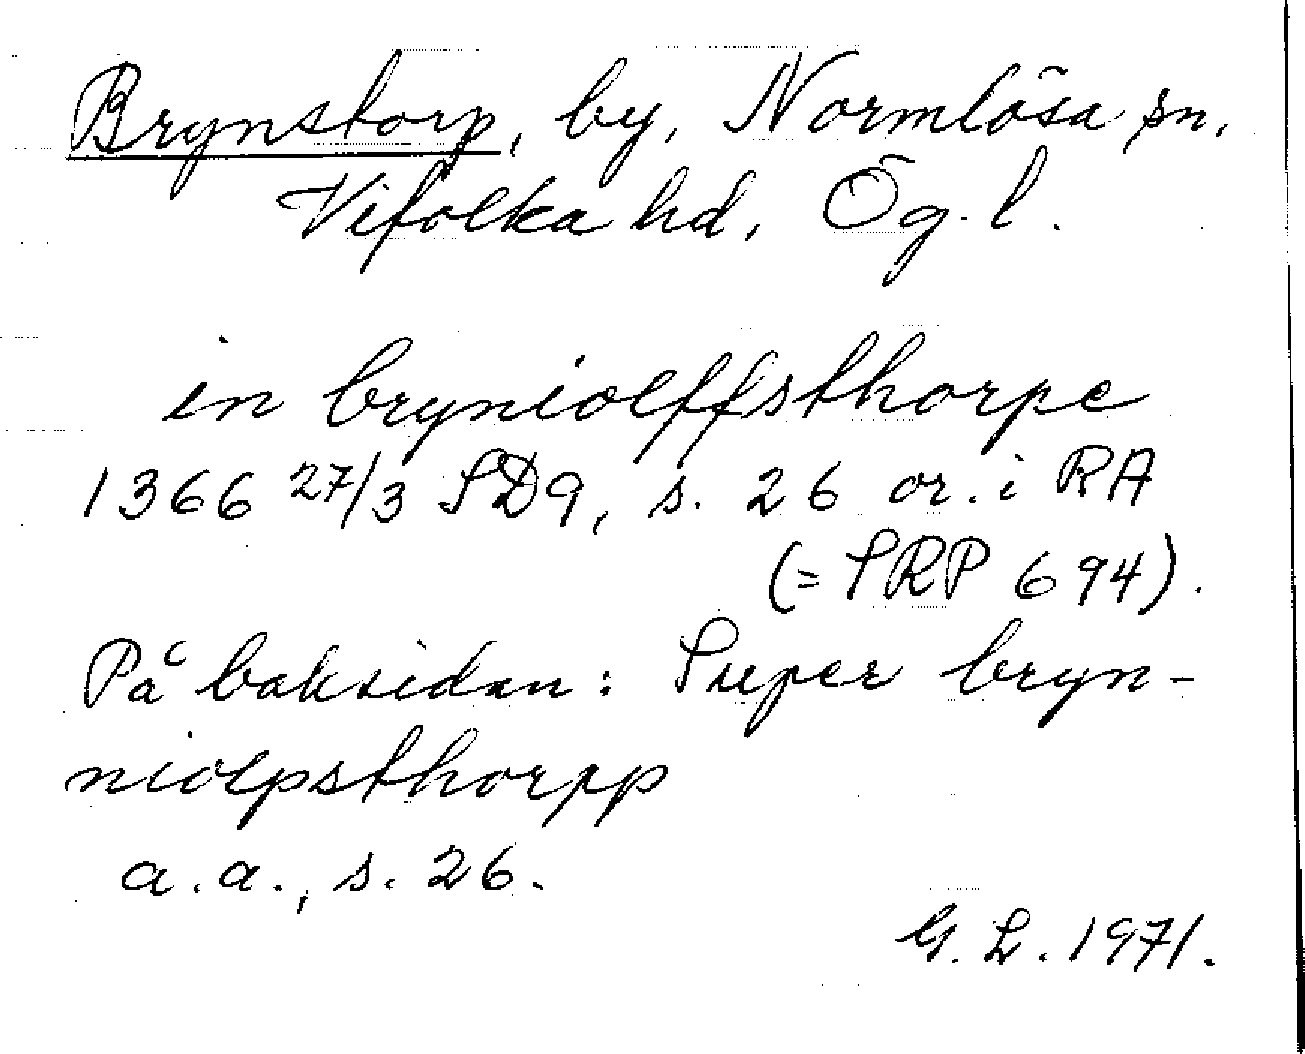 Brynstorp, by, Normlösa sn,
Vifolka hd, Ög. l.
in bryniolffsthorpe
1366 27/3 SD9, s. 26 or. i RA
(= SRP 694).
På baksidan: Super bryn-
niolpsthorpp
a.a., s. 26.
G. L. 1971.